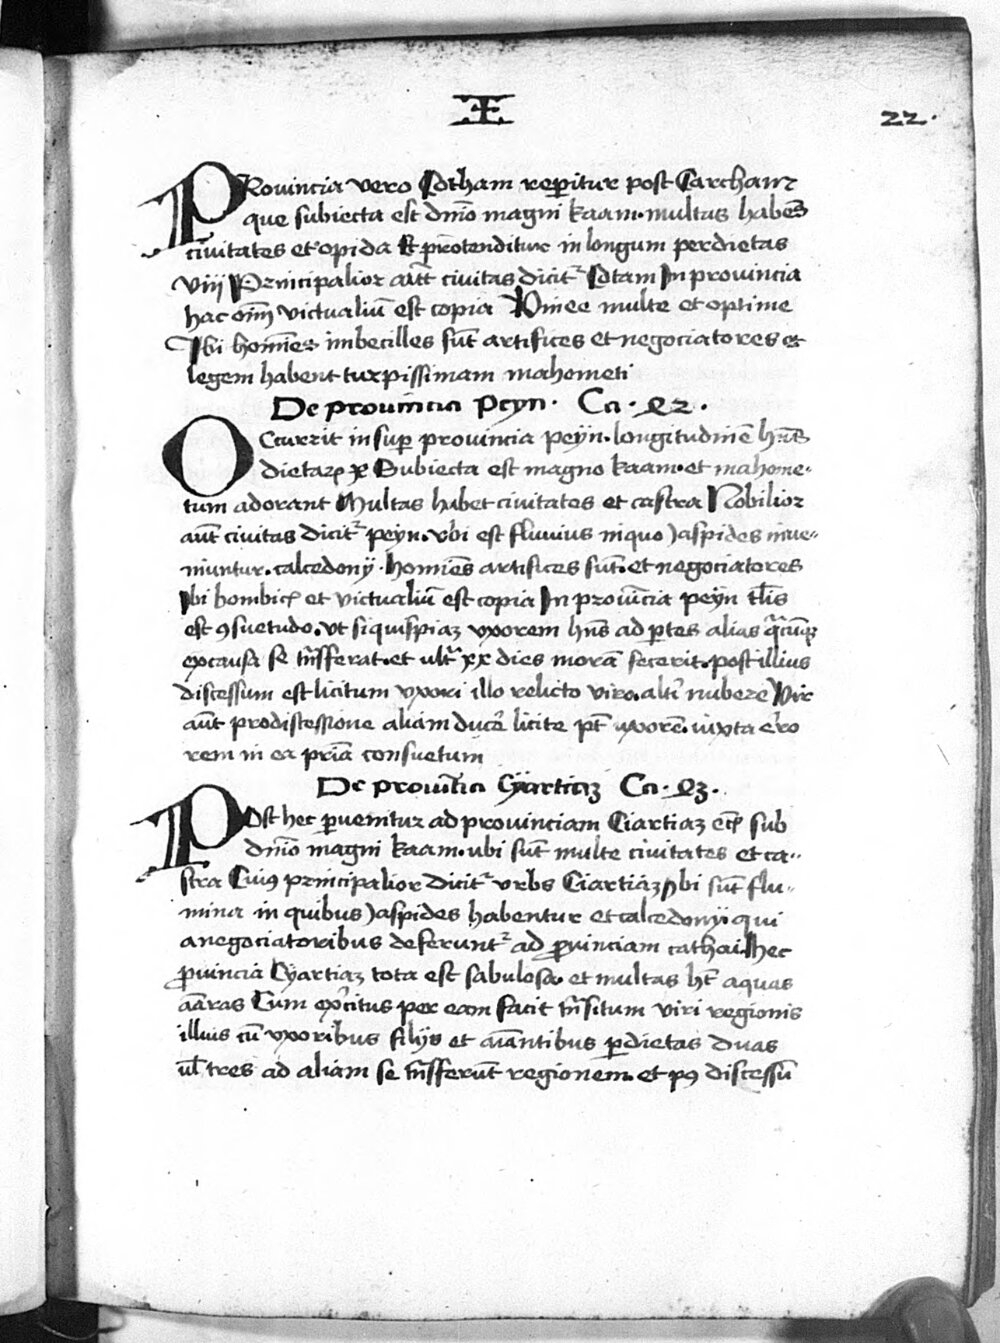 I
22.
PRovincia vero Cotham reperitur post Carchanz
que subiecta est dnīo magni kaam. multas habēs
civitates et opida Et protenditur in longum per dietas
viij Principalior aūt civitas dicitr Cotam In provincia
hac om̄ victualiū est copia Vinee multe et optime
Ibi homīes imbecilles sūt artifices et negociatores et
legem habent turpissimam mahometi
De provincia Peyn. Ca. 42.
OCcurrit insuper provincia peyn. longitudinē hn̄s
dietarꝝ x Subiecta est magno kaam. et mahome-
tum adorant Multas habet civitates et castra Nobilior
aūt civitas dicitr peyn. vbi est fluvius in quo Jaspides inve-
niuntur. calcedonij. homīes artifices sūt. et negociatores
Ibi bombicꝭ et victualiū est copia In provīcia peyn tl̄is
est ꝯsuetudo. vt si quispiaꝫ vxorem hn̄s ad ꝑtes alias q̄cūqꝫ
ex causa se trn̄sferat. et ultr̄ xx dies morā fecerit. post illius
discessum est licitum vxori illo relicto viro. altī nubere Vir
aūt pro discessione aliam ducē licite pt̄ uxorē. iuxta erro
rem in ea pr̄ia consuetum
De provīcia Cyartiaꝫ Ca. 43.
POst hec ꝑvenitur ad provinciam Ciartiaꝫ ec̄ꝫ sub
dnīo magni kaam. ubi sūt multe civitates et ca-
stra Cuiꝯ principalior dicitr vrbs Ciartiaꝫ Vbi sūt flu-
mina in quibus Jaspides habentur et calcedonij qui
a negociatoribus deferuntr ad ꝓvinciam cathai. Hec
ꝓvincia Cyartiaꝫ tota est sabulosa. et multas ht̄ aquas
amaras Cum exercitus per eam facit trn̄situm viri regionis
illius cū vxoribus filijs et aīantibus ꝑ dietas duas
ul̄ tres ad aliam se trn̄sferūt regionem. et pꝯ discessū